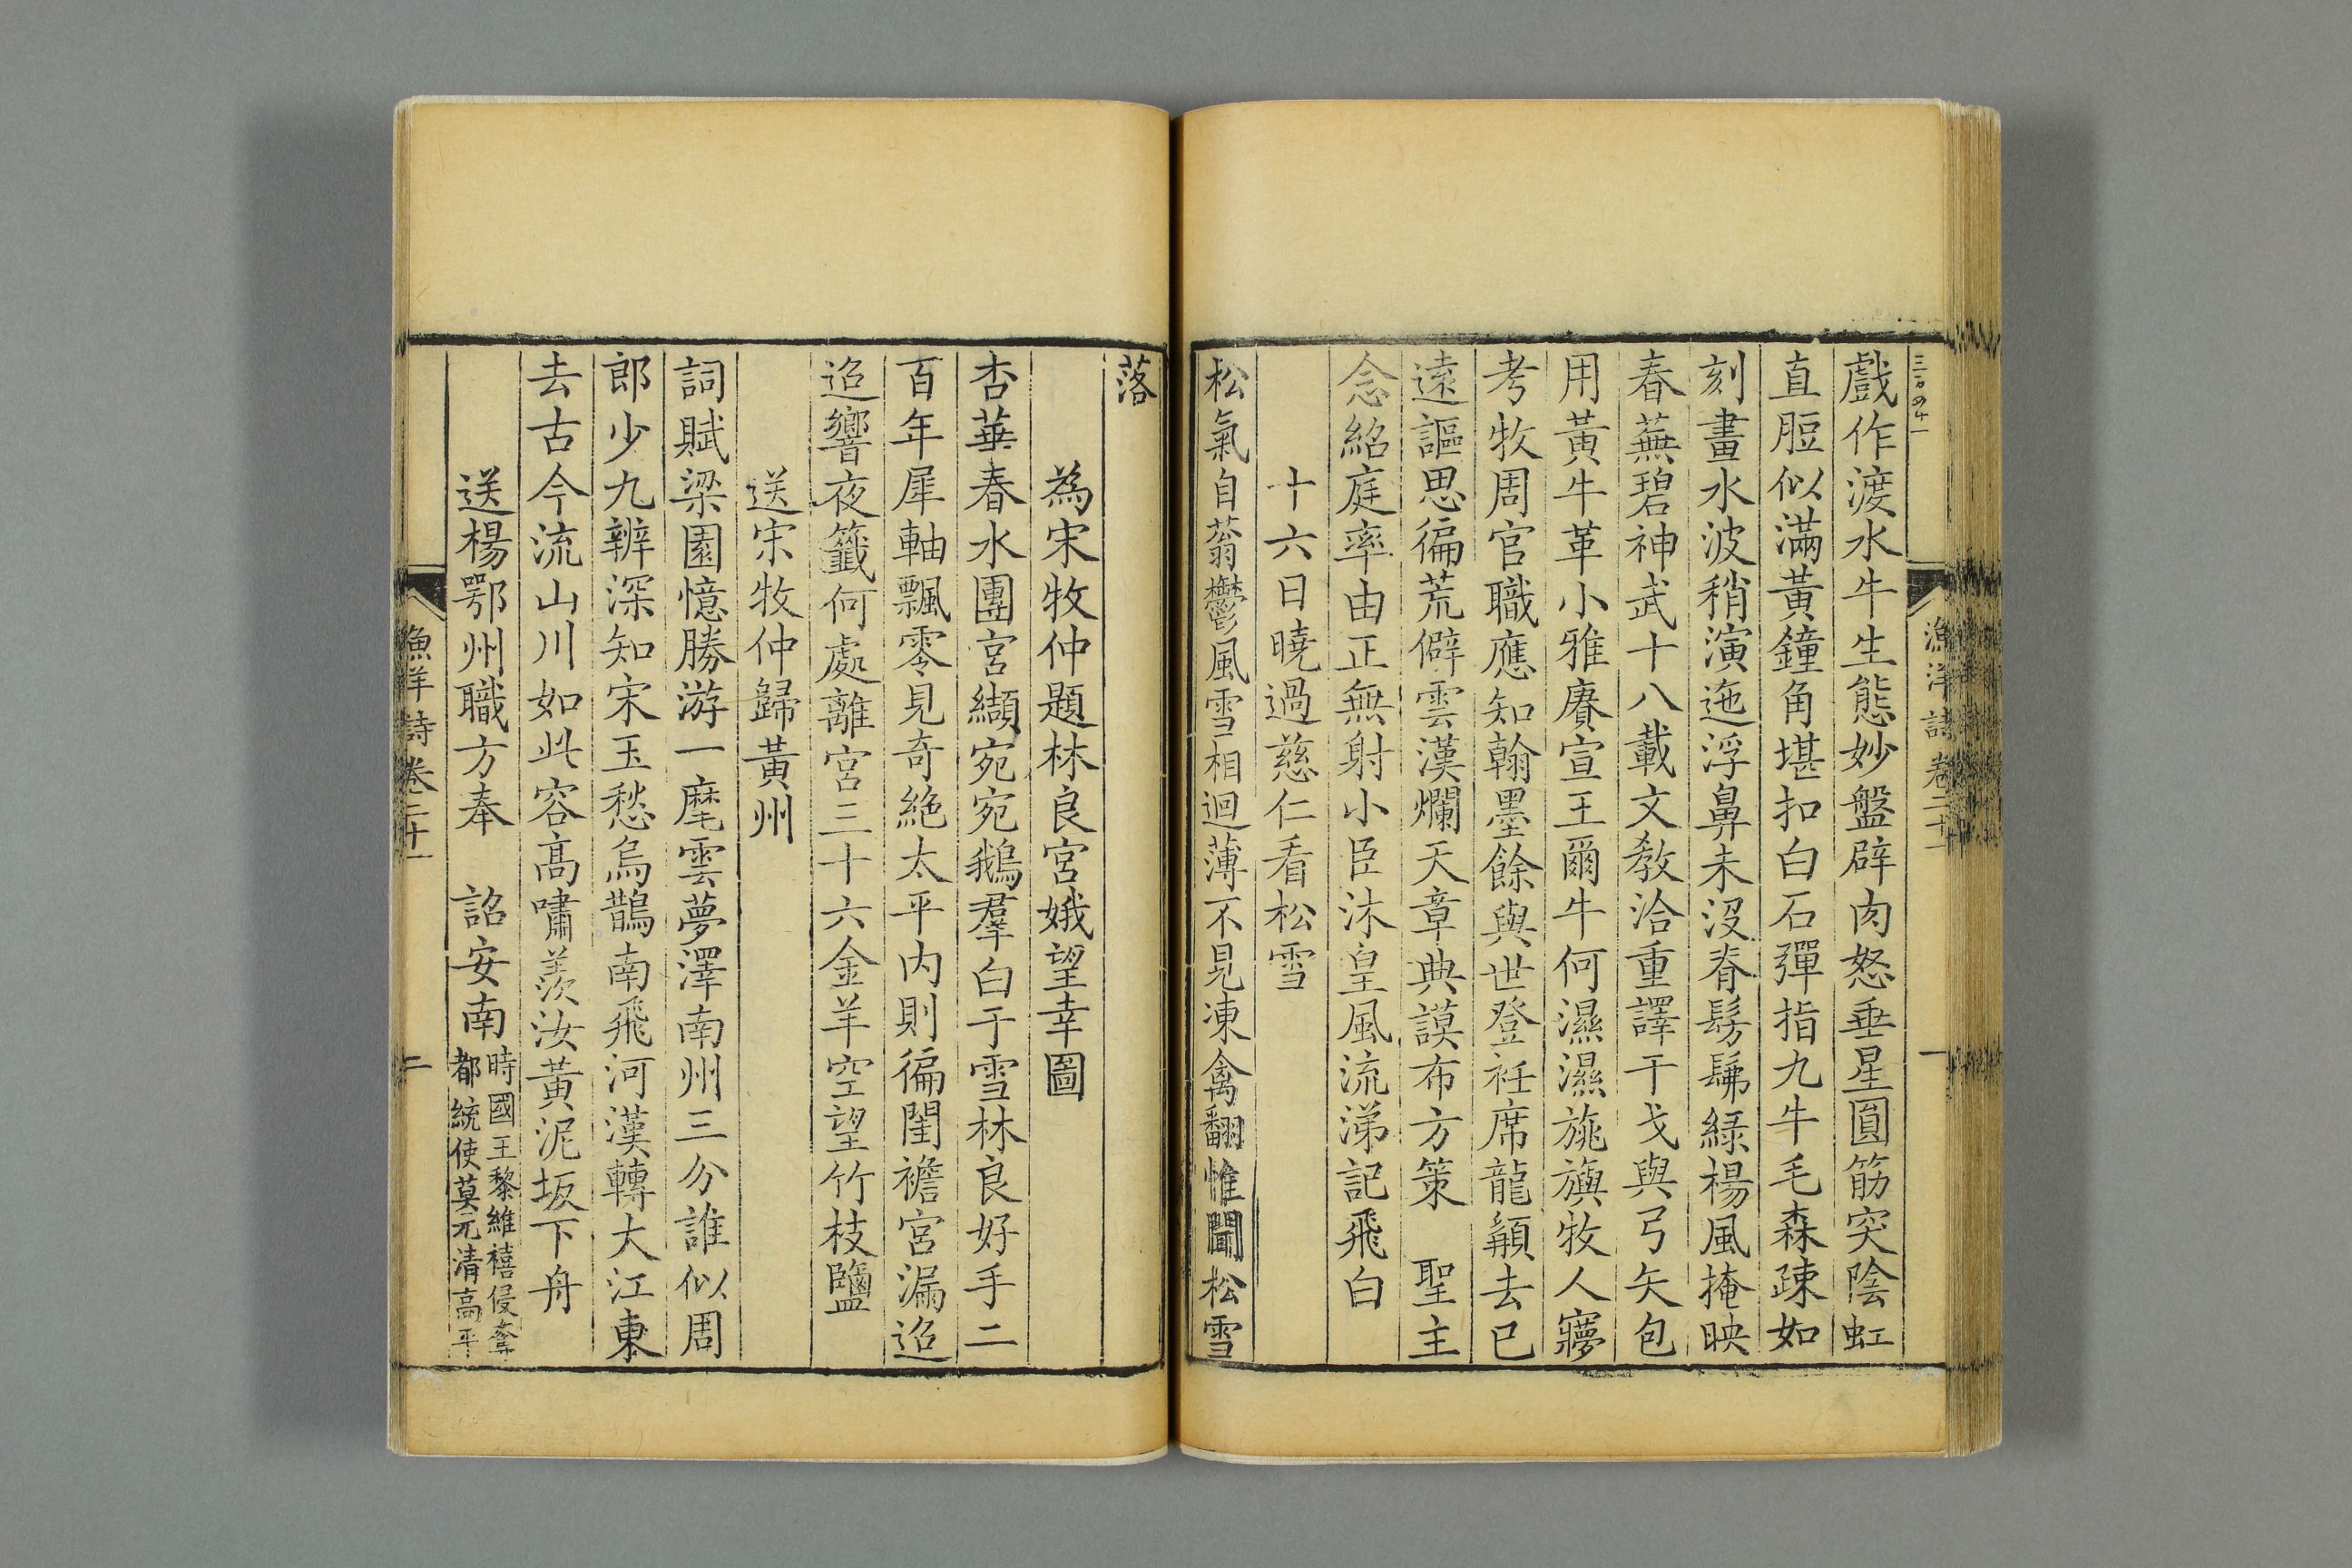 漁洋詩卷二十一
一
戲作渡水牛生態妙盤辟肉怒垂星圓筋突陰虹
直脰似滿黃鐘角堪扣白石彈指九牛毛森疎如
刻畫水波稍演迤浮鼻未沒脊髣髴綠楊風掩映
春蕪碧神武十八載文敎洽重譯干戈與弓矢包
用黃牛革小雅賡宣王爾牛何濕濕旐旟牧人寱
考牧周官職應知翰墨餘與世登衽席龍顙去已
遠謳思徧荒僻雲漢爛天章典謨布方策　聖主
念紹庭率由正無射小臣沐皇風流涕記飛白
十六日曉過慈仁看松雪
松氣自蓊鬱風雪相迴薄不見凍禽翻惟聞松雪
落
為宋牧仲題林良宮娥望幸圖
杏華春水團宮纈宛宛鵝羣白于雪林良好手二
百年犀軸飄零見奇絶太平內則徧閨襜宮漏迢
迢響夜籤何處離宮三十六金羊空望竹枝鹽
送宋牧仲歸黃州
詞賦梁園憶勝游一麾雲夢澤南州三分誰似周
郎少九辨深知宋玉愁烏鵲南飛河漢轉大江東
去古今流山川如此容高嘯羨汝黃泥坂下舟
送楊鄂州職方奉　詔安南
時國王黎維禧侵奪
都統使莫元清高平
漁洋詩卷二十一
二